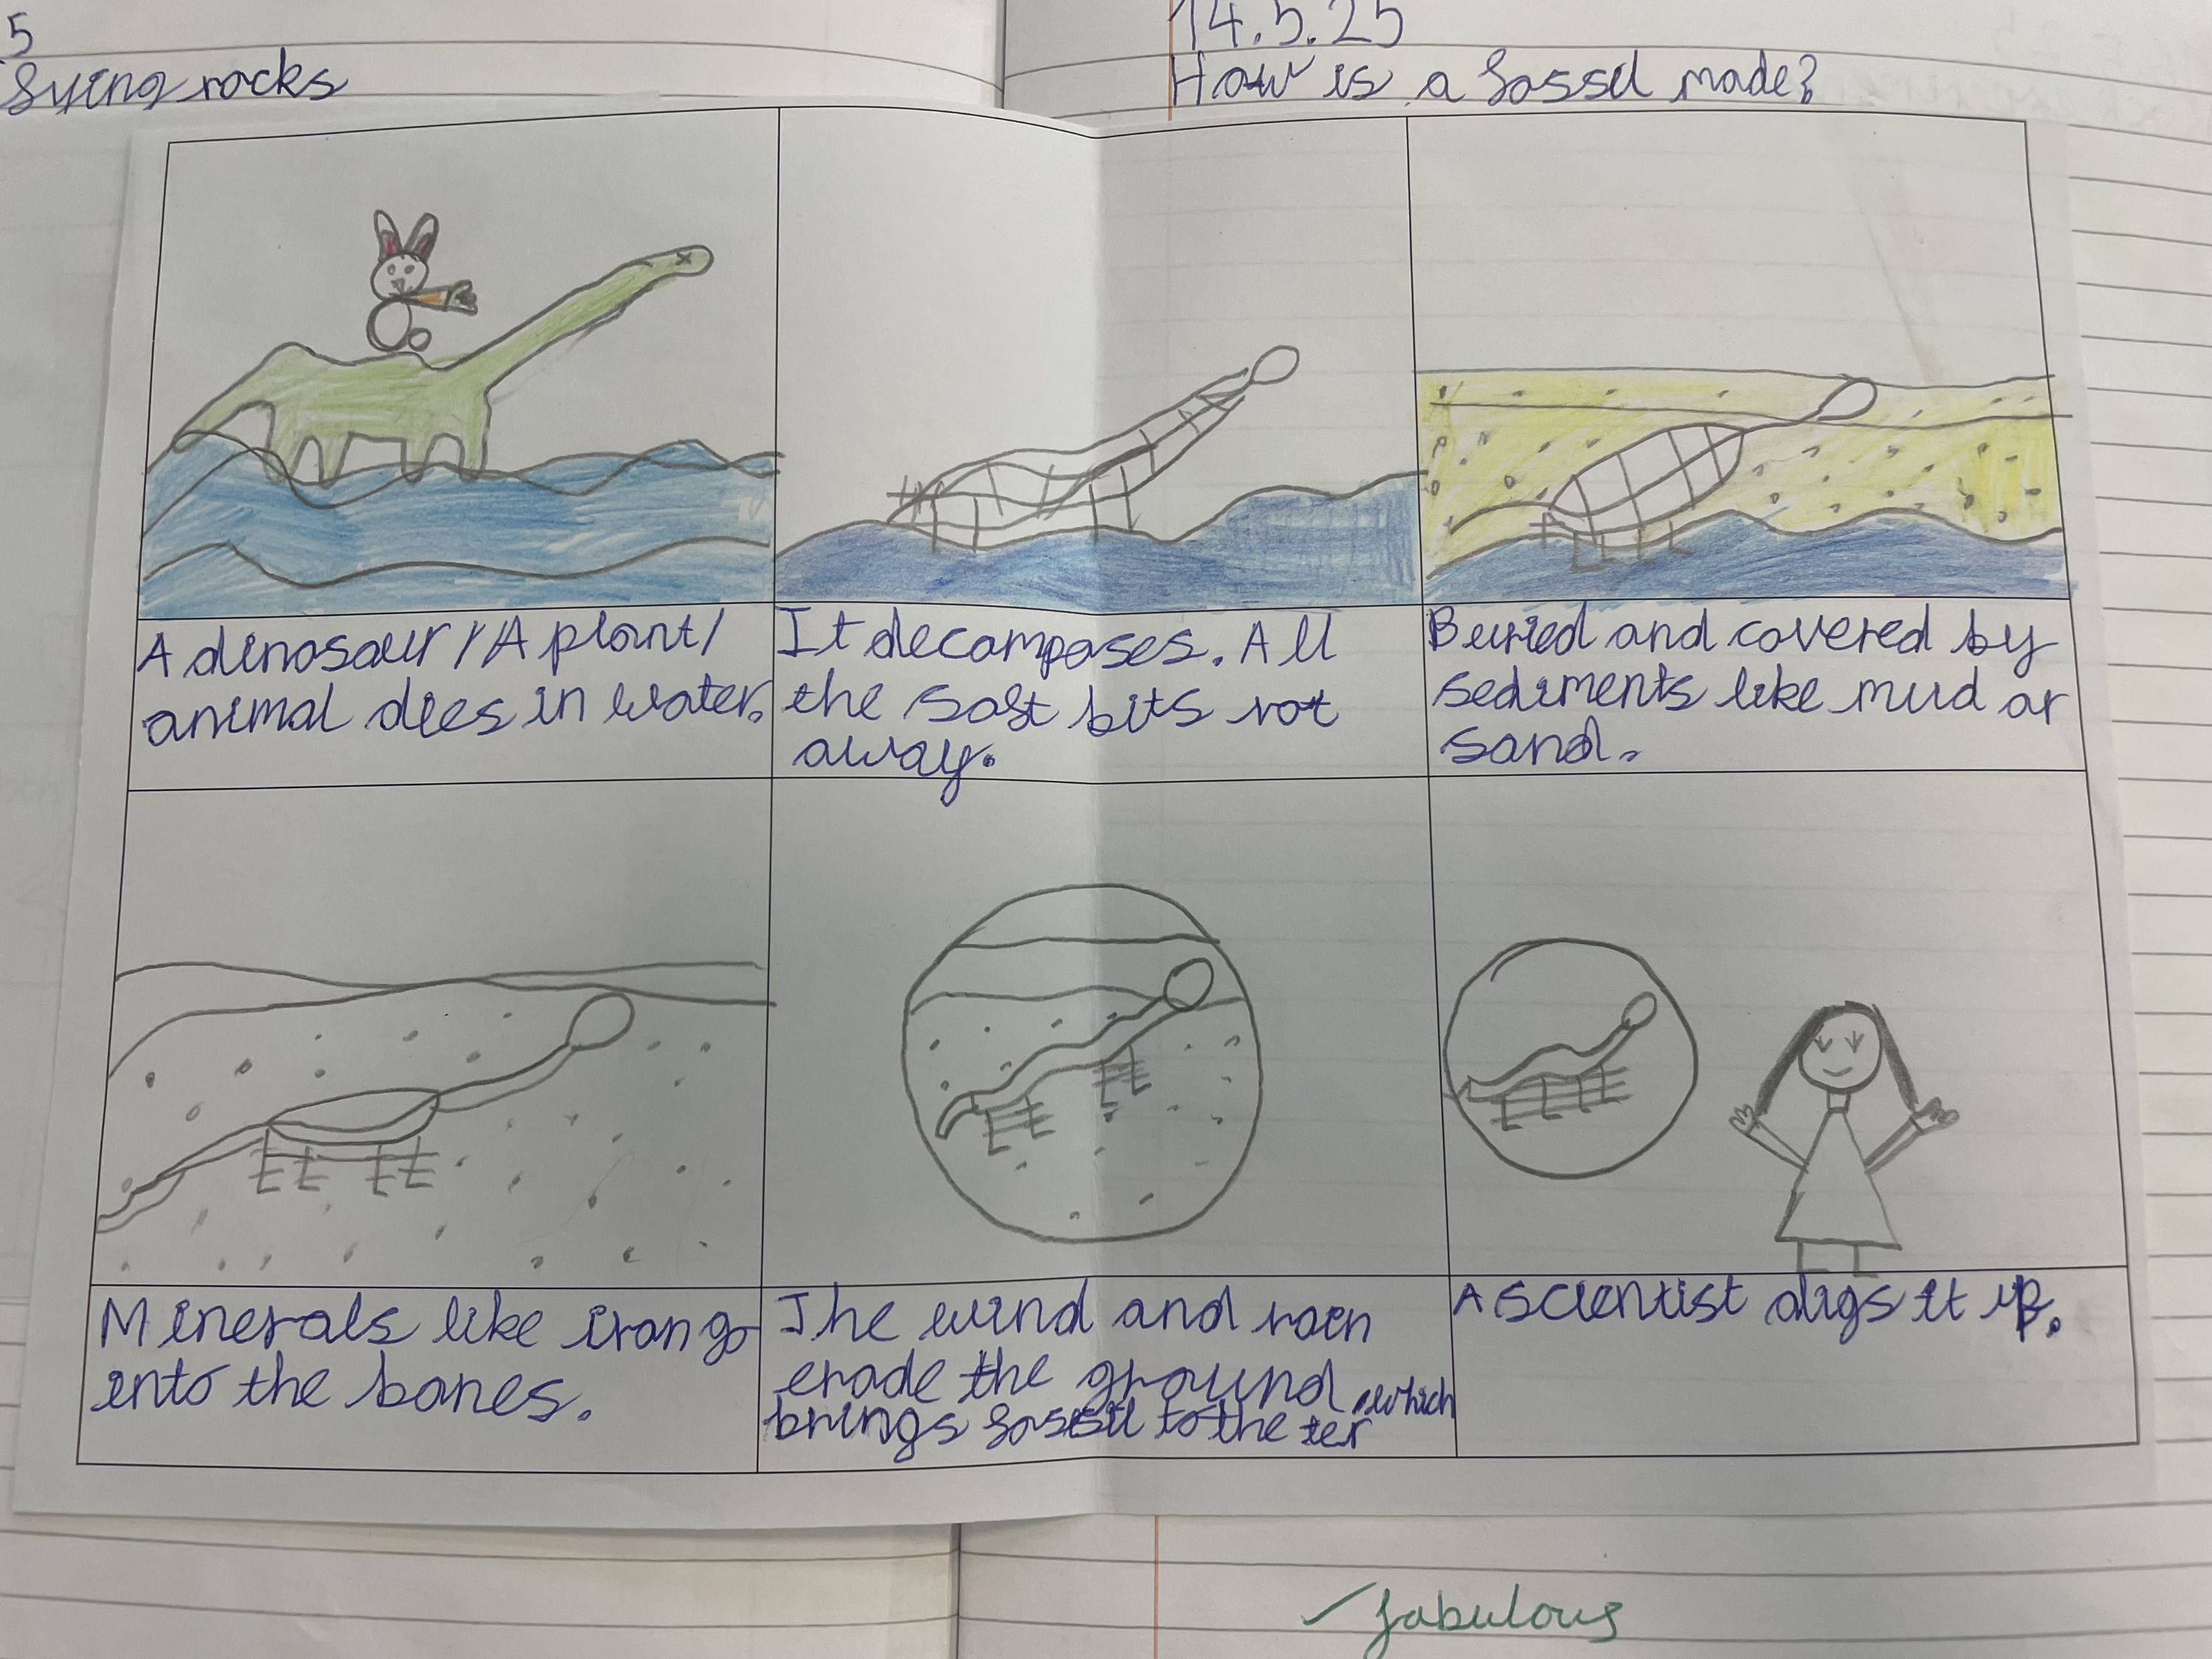 5
fying rocks
14.5.25
How is a fossil made?
A dinosaur / A plant /
animal dies in water.
It decomposes. All
the soft bits rot
away.
Buried and covered by
sediments like mud or
sand.
Minerals like iron go
into the bones.
The wind and rain
erode the ground, which
brings fossil to the ter
A scientist digs it up.
fabulous